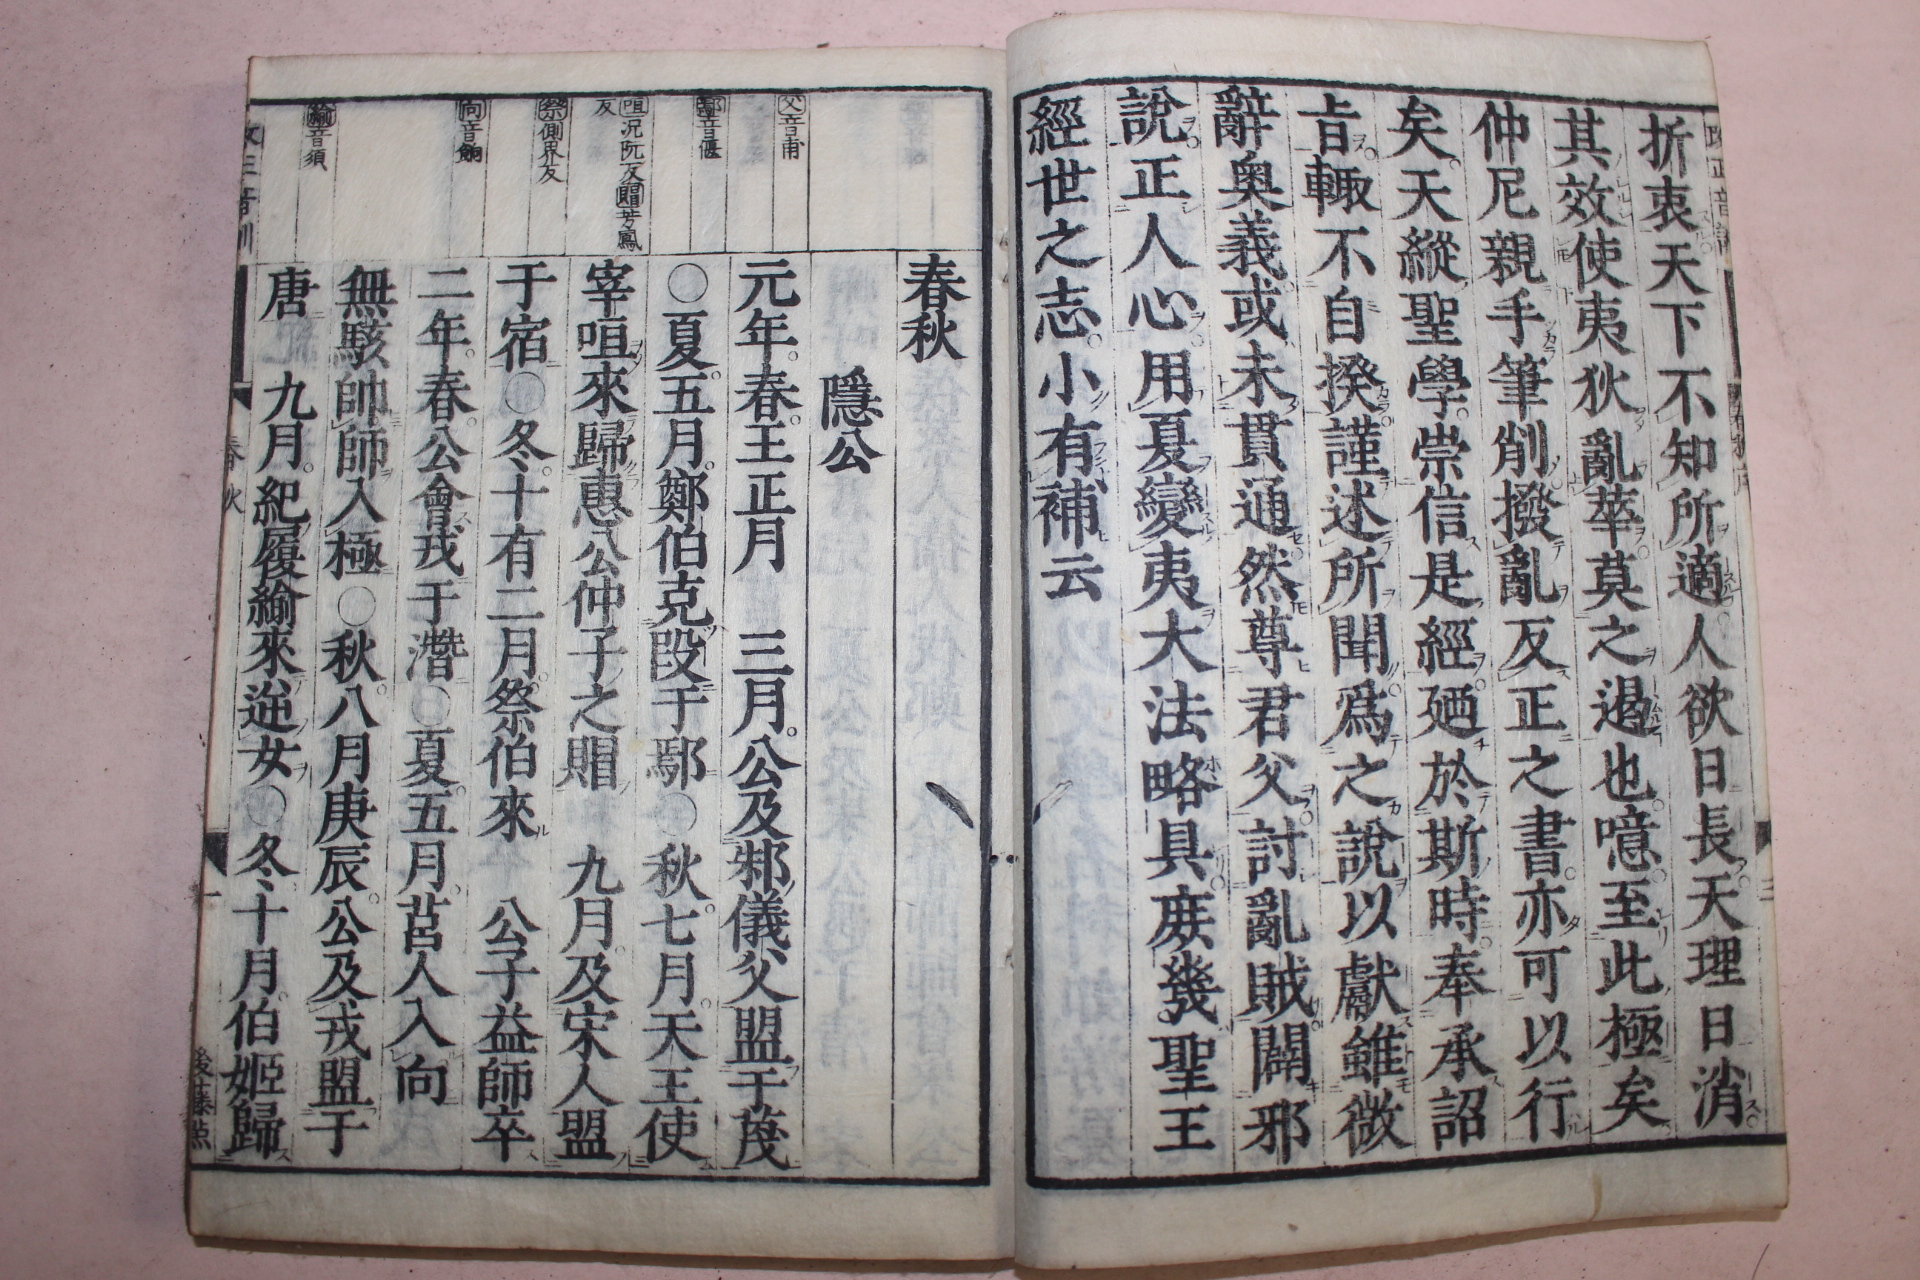 折衷天下不知所適人欲日長天理日消
其效使夷狄亂華莫之遏也噫至此極矣
仲尼親手筆削撥亂反正之書亦可以行
矣天縱聖學崇信是經廼於斯時奉承詔
旨輙不自揆謹述所聞爲之說以獻雖微
辭奥義或未貫通然尊君父討亂賊闢邪
說正人心用夏變夷大法略具庶幾聖王
經世之志小有補云
春秋
隱公
元年春王正月　三月公及邾儀父盟于蔑
○夏五月鄭伯克段于鄢○秋七月天王使
宰咺來歸惠公仲子之賵　九月及宋人盟
于宿○冬十有二月祭伯來　公子益師卒
二年春公會戎于潛○夏五月莒人入向
無駭帥師入極○秋八月庚辰公及戎盟于
唐　九月紀履緰來逆女○冬十月伯姬歸
父音甫
鄢音偃
咺況阮反賵芳鳳
反
祭側界反
向音餉
緰音須
春秋
一
後藤点